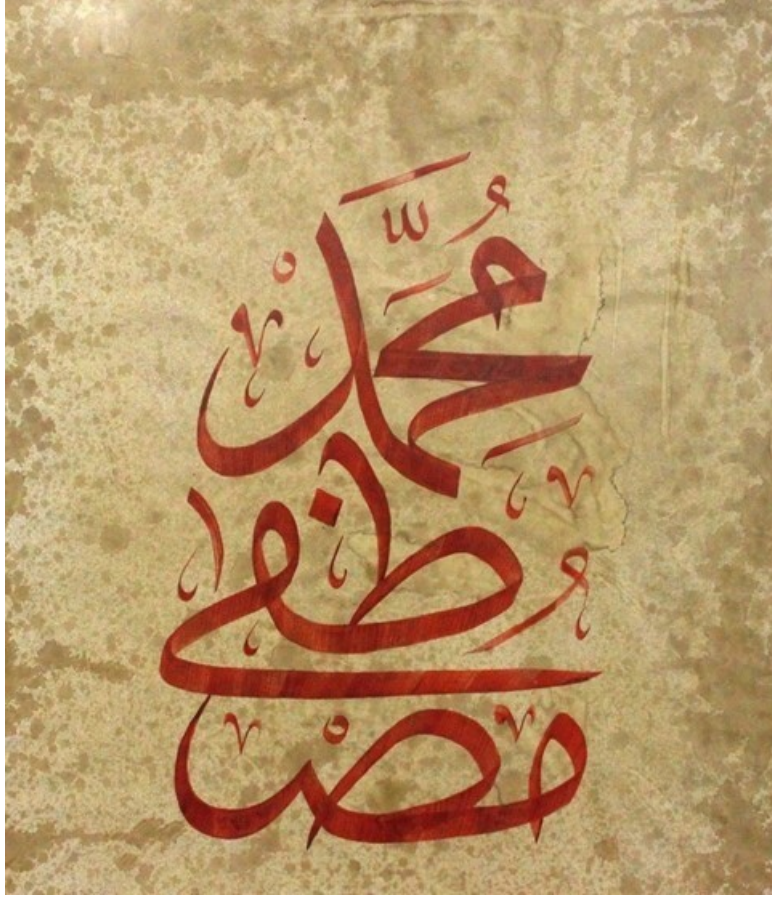 مُحَمَّدْ
مُصْطَفٰى